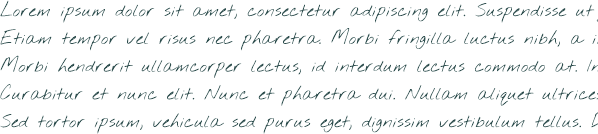 Lorem ipsum dolor sit amet, consectetur adipiscing elit. Suspendisse ut
Etiam tempor vel risus nec pharetra. Morbi fringilla luctus nibh, a
Morbi hendrerit ullamcorper lectus, id interdum lectus commodo at. In
Curabitur et nunc elit. Nunc et pharetra dui. Nullam aliquet ultrices
Sed tortor ipsum, vehicula sed purus eget, dignissim vestibulum tellus.